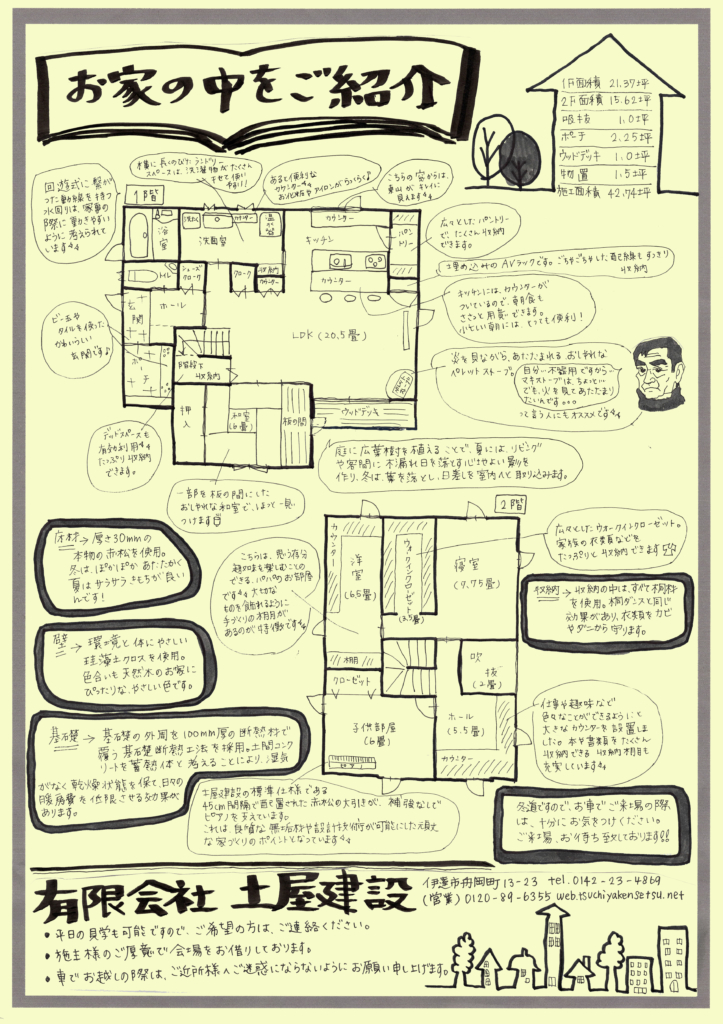 お家の中をご紹介
1F面積 21.37坪
2F面積 15.62坪
吹抜 1.0坪
ポーチ 2.25坪
ウッドデッキ 1.0坪
物置 1.5坪
施工面積 42.74坪
回遊式に繋が
った動線を持つ
水回りは、家事の
際に動きやすい
ように考えられて
います
横に長くのびたランドリー
スペースは、洗濯物がたくさん
干せて使い
やすい!
あると便利な
カウンター
お化粧や アイロンがらくらく♪
こちらの窓からは、
東山が キレイに
見えます
1階
浴室
洗たく
洗面室
カウンター
カウンター
キッチン
パントリー
カウンター
トイレ
シューズ
クローク
クローク
収納
カウンター
玄関
ホール
LDK (20.5畳)
ポーチ
階段下
収納
押入
和室
(6畳)
板の間
ウッドデッキ
広々とした パントリー
で、たくさん 収納
できます。
土里め込みの AVラックです。ごちゃごちゃした配線もすっきり
収納
キッチンには、カウンターが
ついているので、朝食も
ささっと用意できます。
忙しい朝には、とっても便利!
ビー玉や
タイルを使った
かわいらしい
玄関です♪
火を見ながら、あたたまれる おしゃれな
ペレットストーブ。
自分…不器用ですから…
マキストーブは、ちょっと…
でも、火を見てあたたまり
たいんです。。。
って言う人にもオススメです
デッドスペースも
有効利用
たっぷり収納
できます。
一部を板の間にした
おしゃれな和室で、ほっと一息
つけます
庭に広葉樹を植えることで、夏には、リビング
や客間に木漏れ日を落とす心地よい影を
作り、冬は、葉を落とし、日差しを室内へと取り込みます。
2階
床材 → 厚さ30mmの
本物の赤松を使用。
冬は、ぽかぽか あたたかく
夏は サラサラ きもちが良い
んです!
壁 → 環境と体にやさしい
珪藻土クロスを使用。
色合いも 天然木の お家に
ぴったりな、やさしい色です。
基礎 → 基礎の外周を100mm厚の断熱材で
覆う 基礎断熱工法を採用。土間コンク
リートを蓄熱体と 考えることにより、湿気
がなく乾燥状態を保て、日々の
暖房費を低限させる効果が
あります。
こちらは、思う存分
趣味を楽しむことの
できる、パパのお部屋
です 大切な
ものを飾れるように
手づくりの棚が
あるのが特徴です
カウンター
洋室
(6.5畳)
棚
クローゼット
子供部屋
(6畳)
ウォークインクローゼット
(3.5畳)
寝室
(9.75畳)
吹抜
(2畳)
ホール
(5.5畳)
カウンター
広々とした ウォークインクローゼット。
家族の衣類などを
たっぷりと 収納できます
収納 → 収納の中は、すべて桐材
を使用。桐ダンスと同じ
効果があり、衣類をカビ
やダニから守ります。
仕事や趣味など
色々なことができるようにと
大きなカウンターを設置しま
した。本や書類をたくさん
収納できる 収納棚も
充実しています
土屋建設の標準仕様である
45cm間隔で配置された赤松の大引きが、補強なしで
ピアノを支えています。
これは、良質な無垢材や設計技術が可能にした頑丈
な家づくりのポイントとなっています
冬道ですので、お車でご来場の際
は、十分にお気をつけください。
ご来場、お待ち致しております!!
有限会社 土屋建設
伊達市舟岡町13-23 tel.0142-23-4869
(営業)0120-89-6355 web.tsuchiyakensetsu.net
・平日の見学も可能ですので、ご希望の方は、ご連絡ください。
・施主様のご厚意で会場をお借りしております。
・車でお越しの際は、ご近所様へご迷惑にならないようにお願い申し上げます。